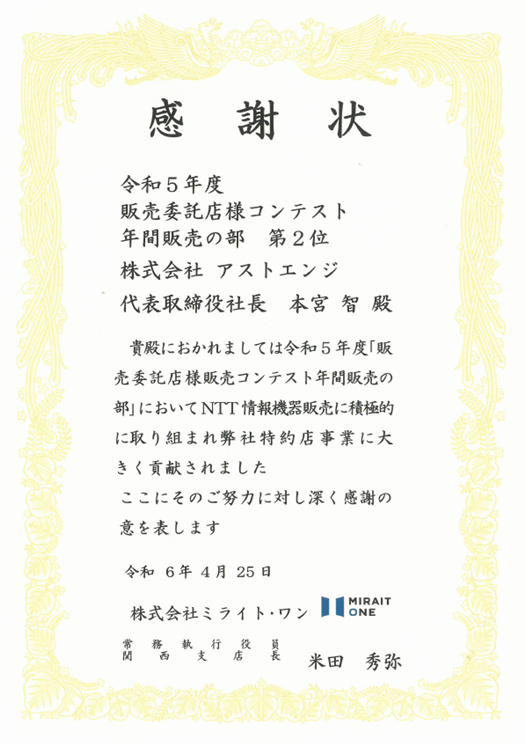 感謝状
令和5年度
販売委託店様コンテスト
年間販売の部 第2位
株式会社 アストエンジ
代表取締役社長 本宮 智 殿
貴殿におかれましては令和5年度「販
売委託店様販売コンテスト年間販売の
部」においてNTT情報機器販売に積極的
に取り組まれ弊社特約店事業に大
きく貢献されました
ここにそのご努力に対し深く感謝の
意を表します
令和 6年 4月 25日
株式会社ミライト・ワン
MIRAIT
ONE
常務執行役員
関西支店長
米田 秀弥